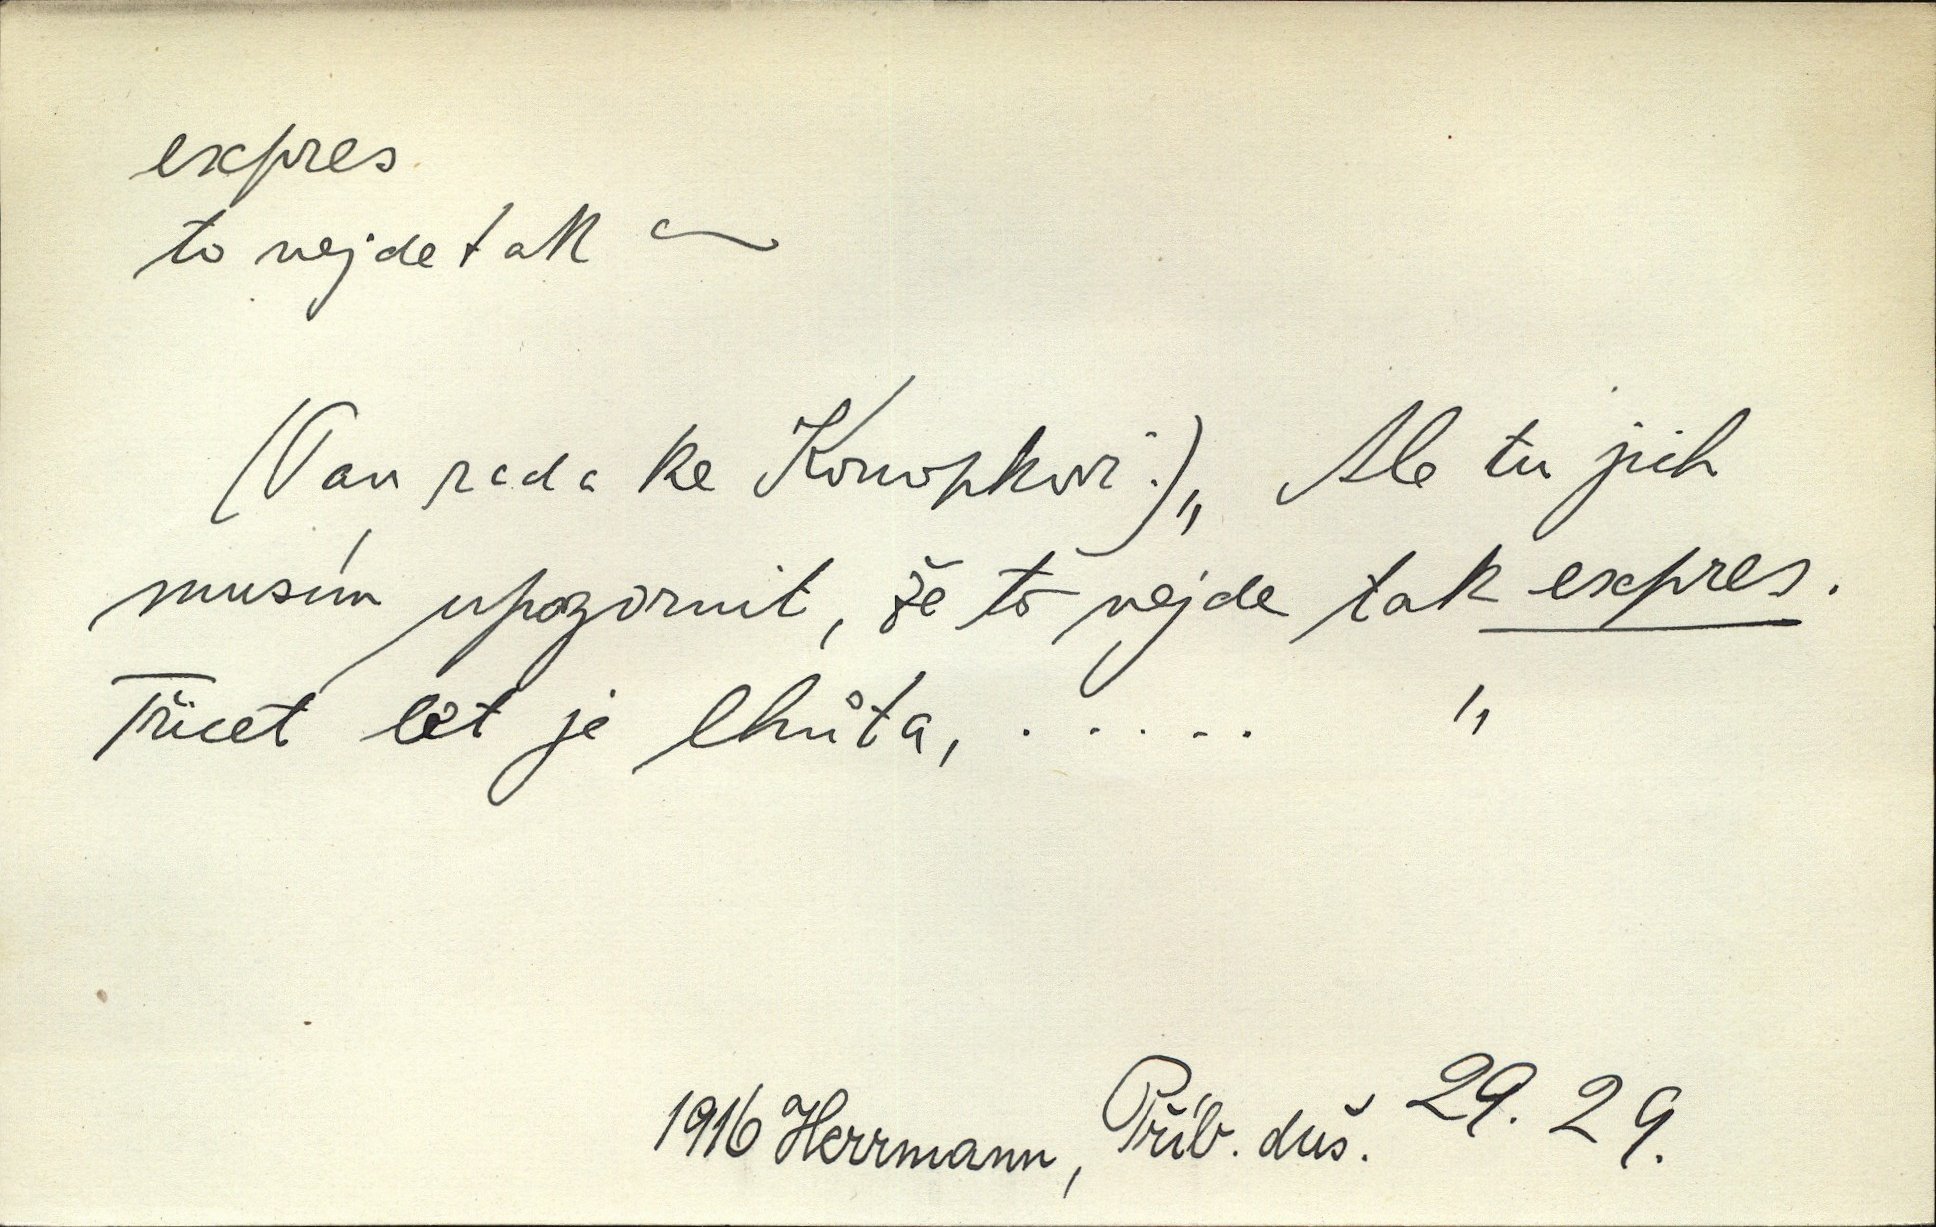 expres
to nejde tak ~
(Pan rada ke Konopkovi:) „Ale tu jich
musím upozornit, že to nejde tak expres.
Třicet let je lhůta, . . . . . "
1916 Herrmann, Příb. duš. 29. 29.